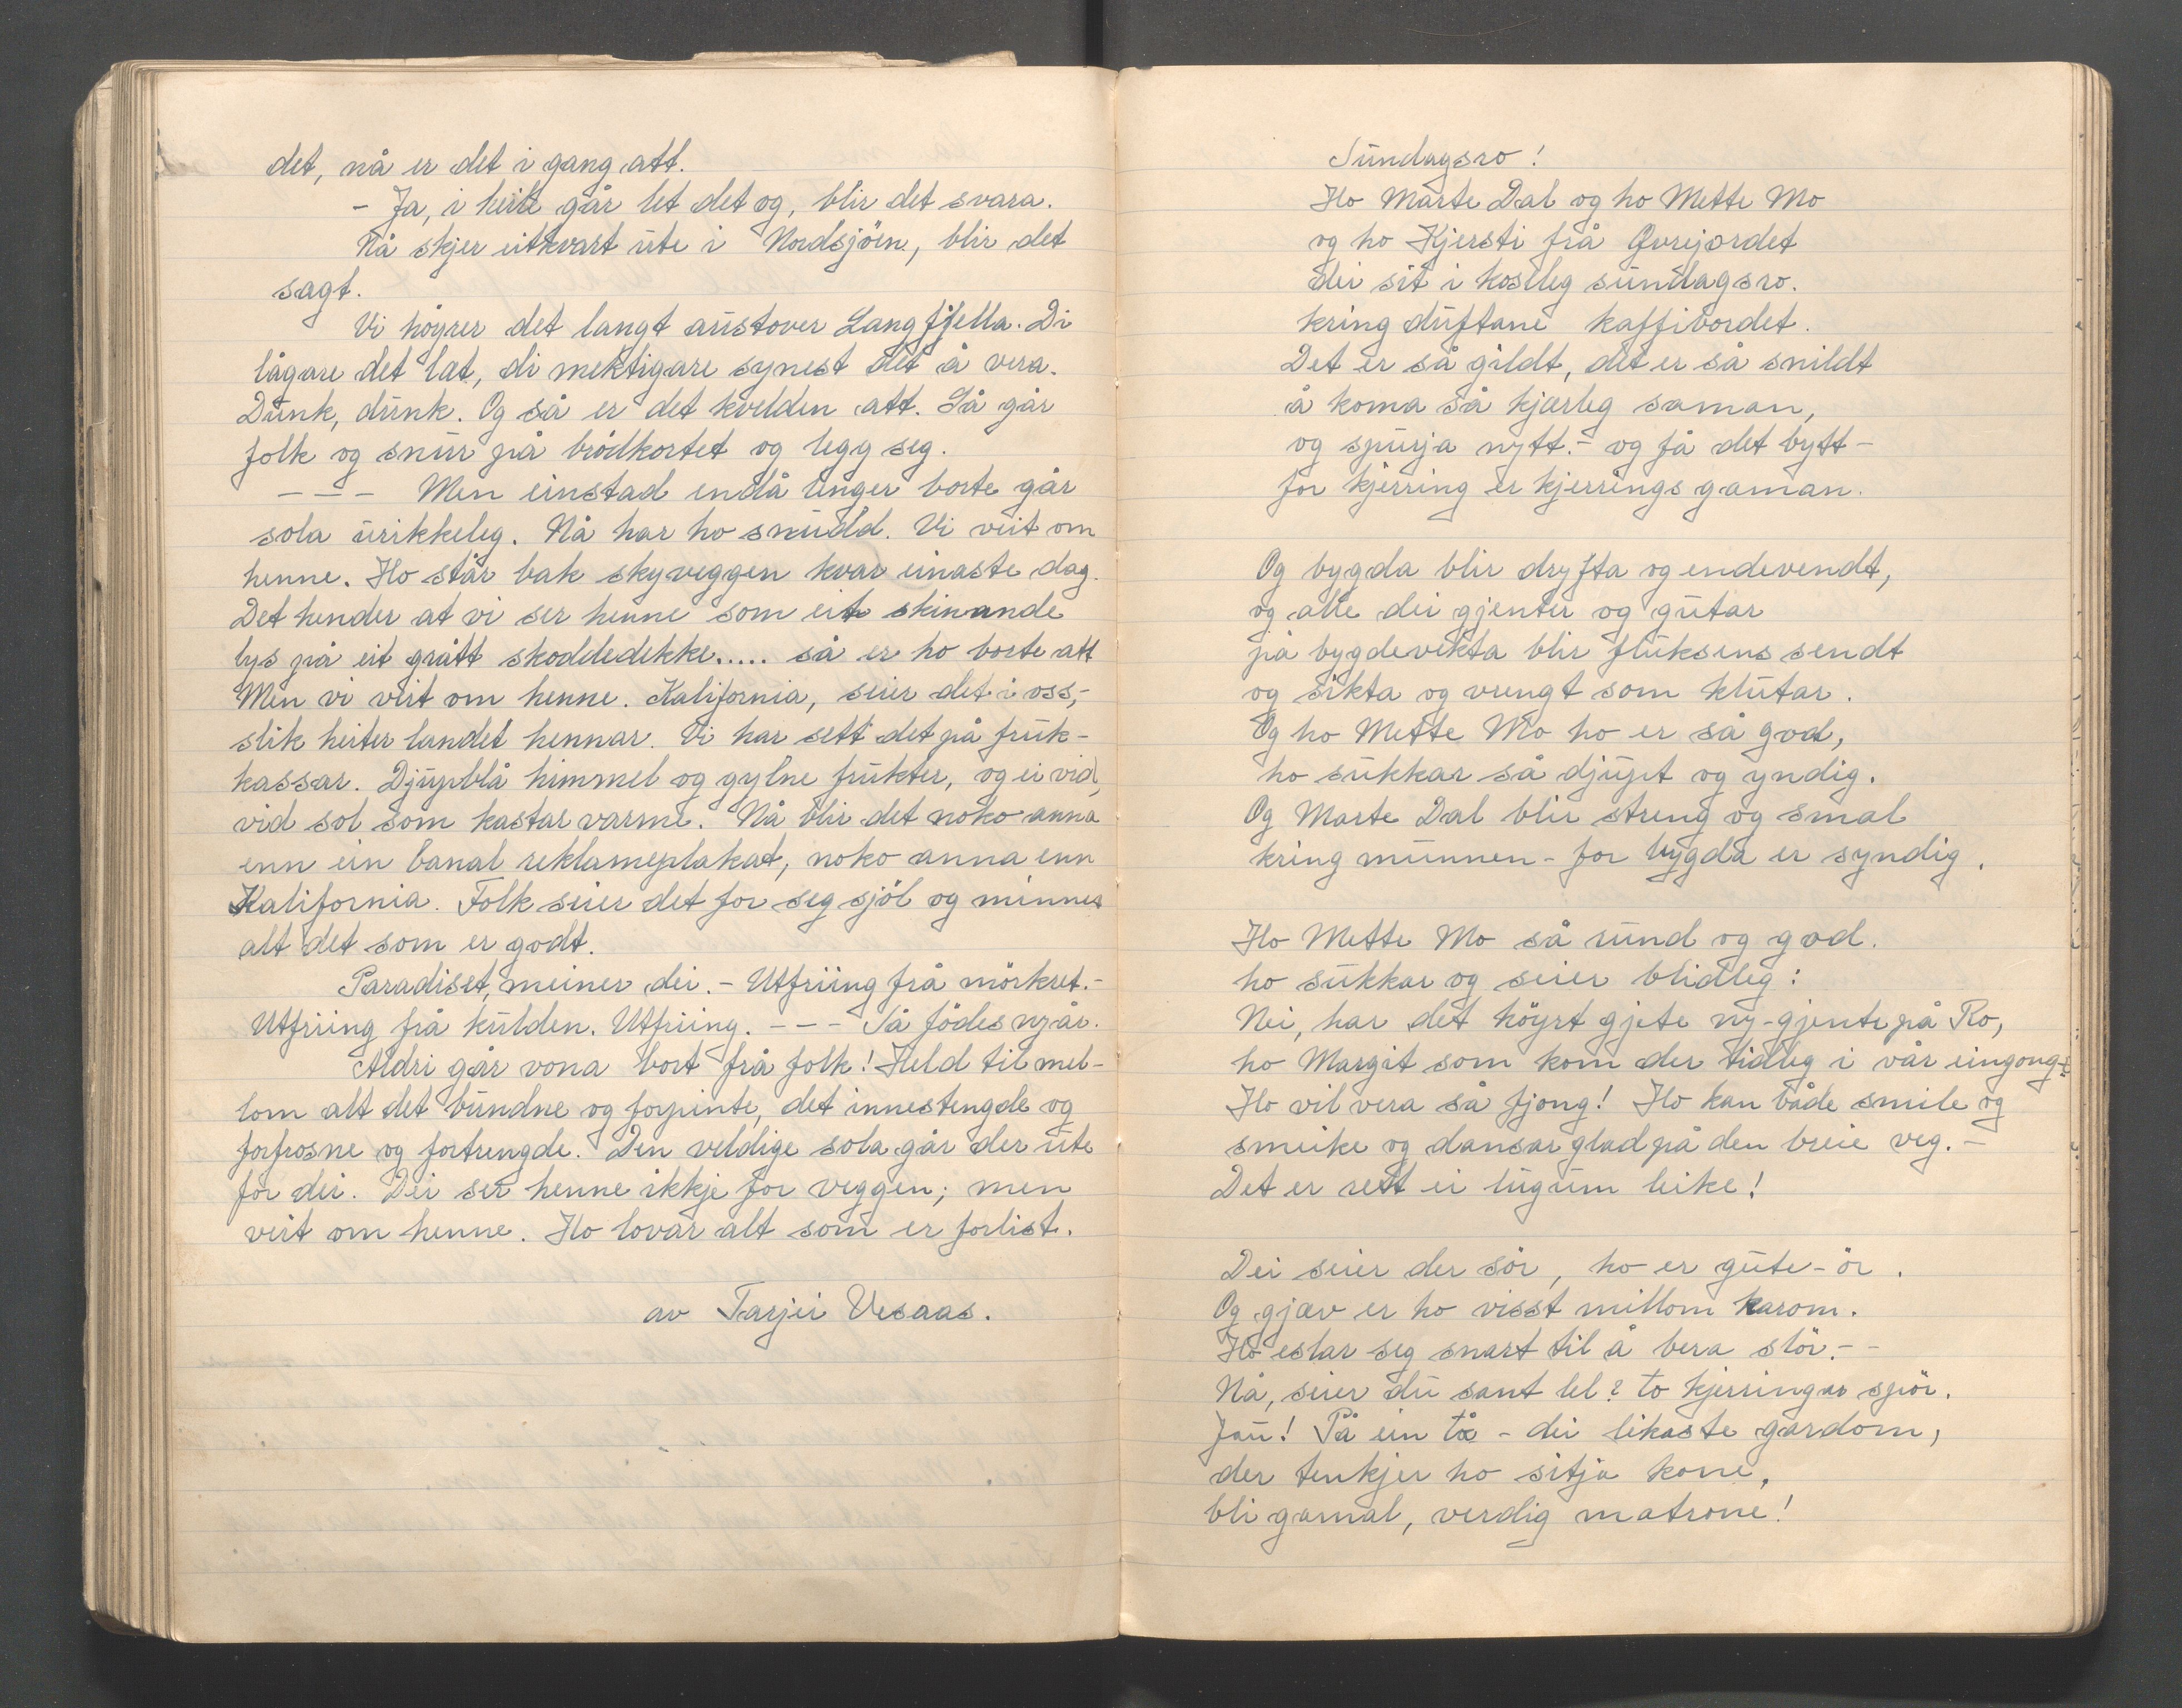 det, nå er det i gang att.
- Ja, i heile går let det og, blir det svara.
Nå skjer eitkvart ute i Nordsjöen, blir det
sagt.
Vi höyrer det langt austover Langfjella. Di
lågare det læt, di mektigare synest det å vera.
Dunk, dunk. Og så er det kvelden att. Så går
folk og snur på brödkortet og legg seg.
- - - Men einstad endå lenger borte går
sola urikkeleg. Nå har ho snudd. Vi veit om
henne. Ho står bak skyveggen kvar einaste dag.
Det hender at vi ser henne som eit skinande
lys på eit grått skoddedekke..... så er ho borte att
Men vi veit om henne. Kalifornia, seier det i oss,-
slik heiter landet hennar. Vi har sett det på fruk-
kassar. Djupblå himmel og gylne frukter, og ei vid,
vid sol som kastar varme. Nå blir det noko anna
enn ein banal reklameplakat, noko anna enn
Kalifornia. Folk seier det for seg sjöl og minnes
alt det som er godt.
Paradiset, meiner dei. - Utfriing frå mörkret.-
Utfriing frå kulden. Utfriing. - - - Så födes nyår.
Aldri går vona bort frå folk! Held til mel-
lom alt det bundne og forpinte, det innestengde og
forfrosne og fortrengde. Den veldige sola går der ute
for dei. Dei ser henne ikkje for veggen; men
veit om henne. Ho lovar alt som er forlist.
av Tarjei Vesaas.
Sundagsro!
Ho Marte Dal og ho Mette Mo
og ho Kjersti frå Øvrejordet
dei sit i kostleg sundagsro.
kring duftane kaffibordet.
Det er så gildt, det er så snildt
å koma så kjærleg saman,
og spurja nytt.- og få det bytt -
for kjerring er kjerrings gaman.
Og bygda blir dryfta og endevendt,
og alle dei gjenter og gutar
på bygdevekta blir fluksens sendt
og sikta og vrengt som klutar.
Og ho Mette Mo ho er så god,
ho sukkar så djupt og yndig.
Og Marte Dal blir streng og smal
kring munnen - for bygda er syndig.
Ho Mette Mo så rund og god.
ho sukkar og seier blidleg:
Nei, har det höyrt gjete ny-gjenta på Ro,
ho Margit som kom der tidleg i vår eingong-?
Ho vil vera så fjong! Ho kan både smile og
smeike og dansar glad på den breie veg.-
Det er rett ei lugum leike!
Dei seier der sör, ho er gute-ör.
Og gjæv er ho visst millom karom.
Ho eslar seg snart til å bera slör.--
Nå, seier du sant lel? to kjerringar spör.
Jau! På ein tå - dei likaste gardom,
der tenkjer ho sitja kone,
bli gamal, verdig matrone!